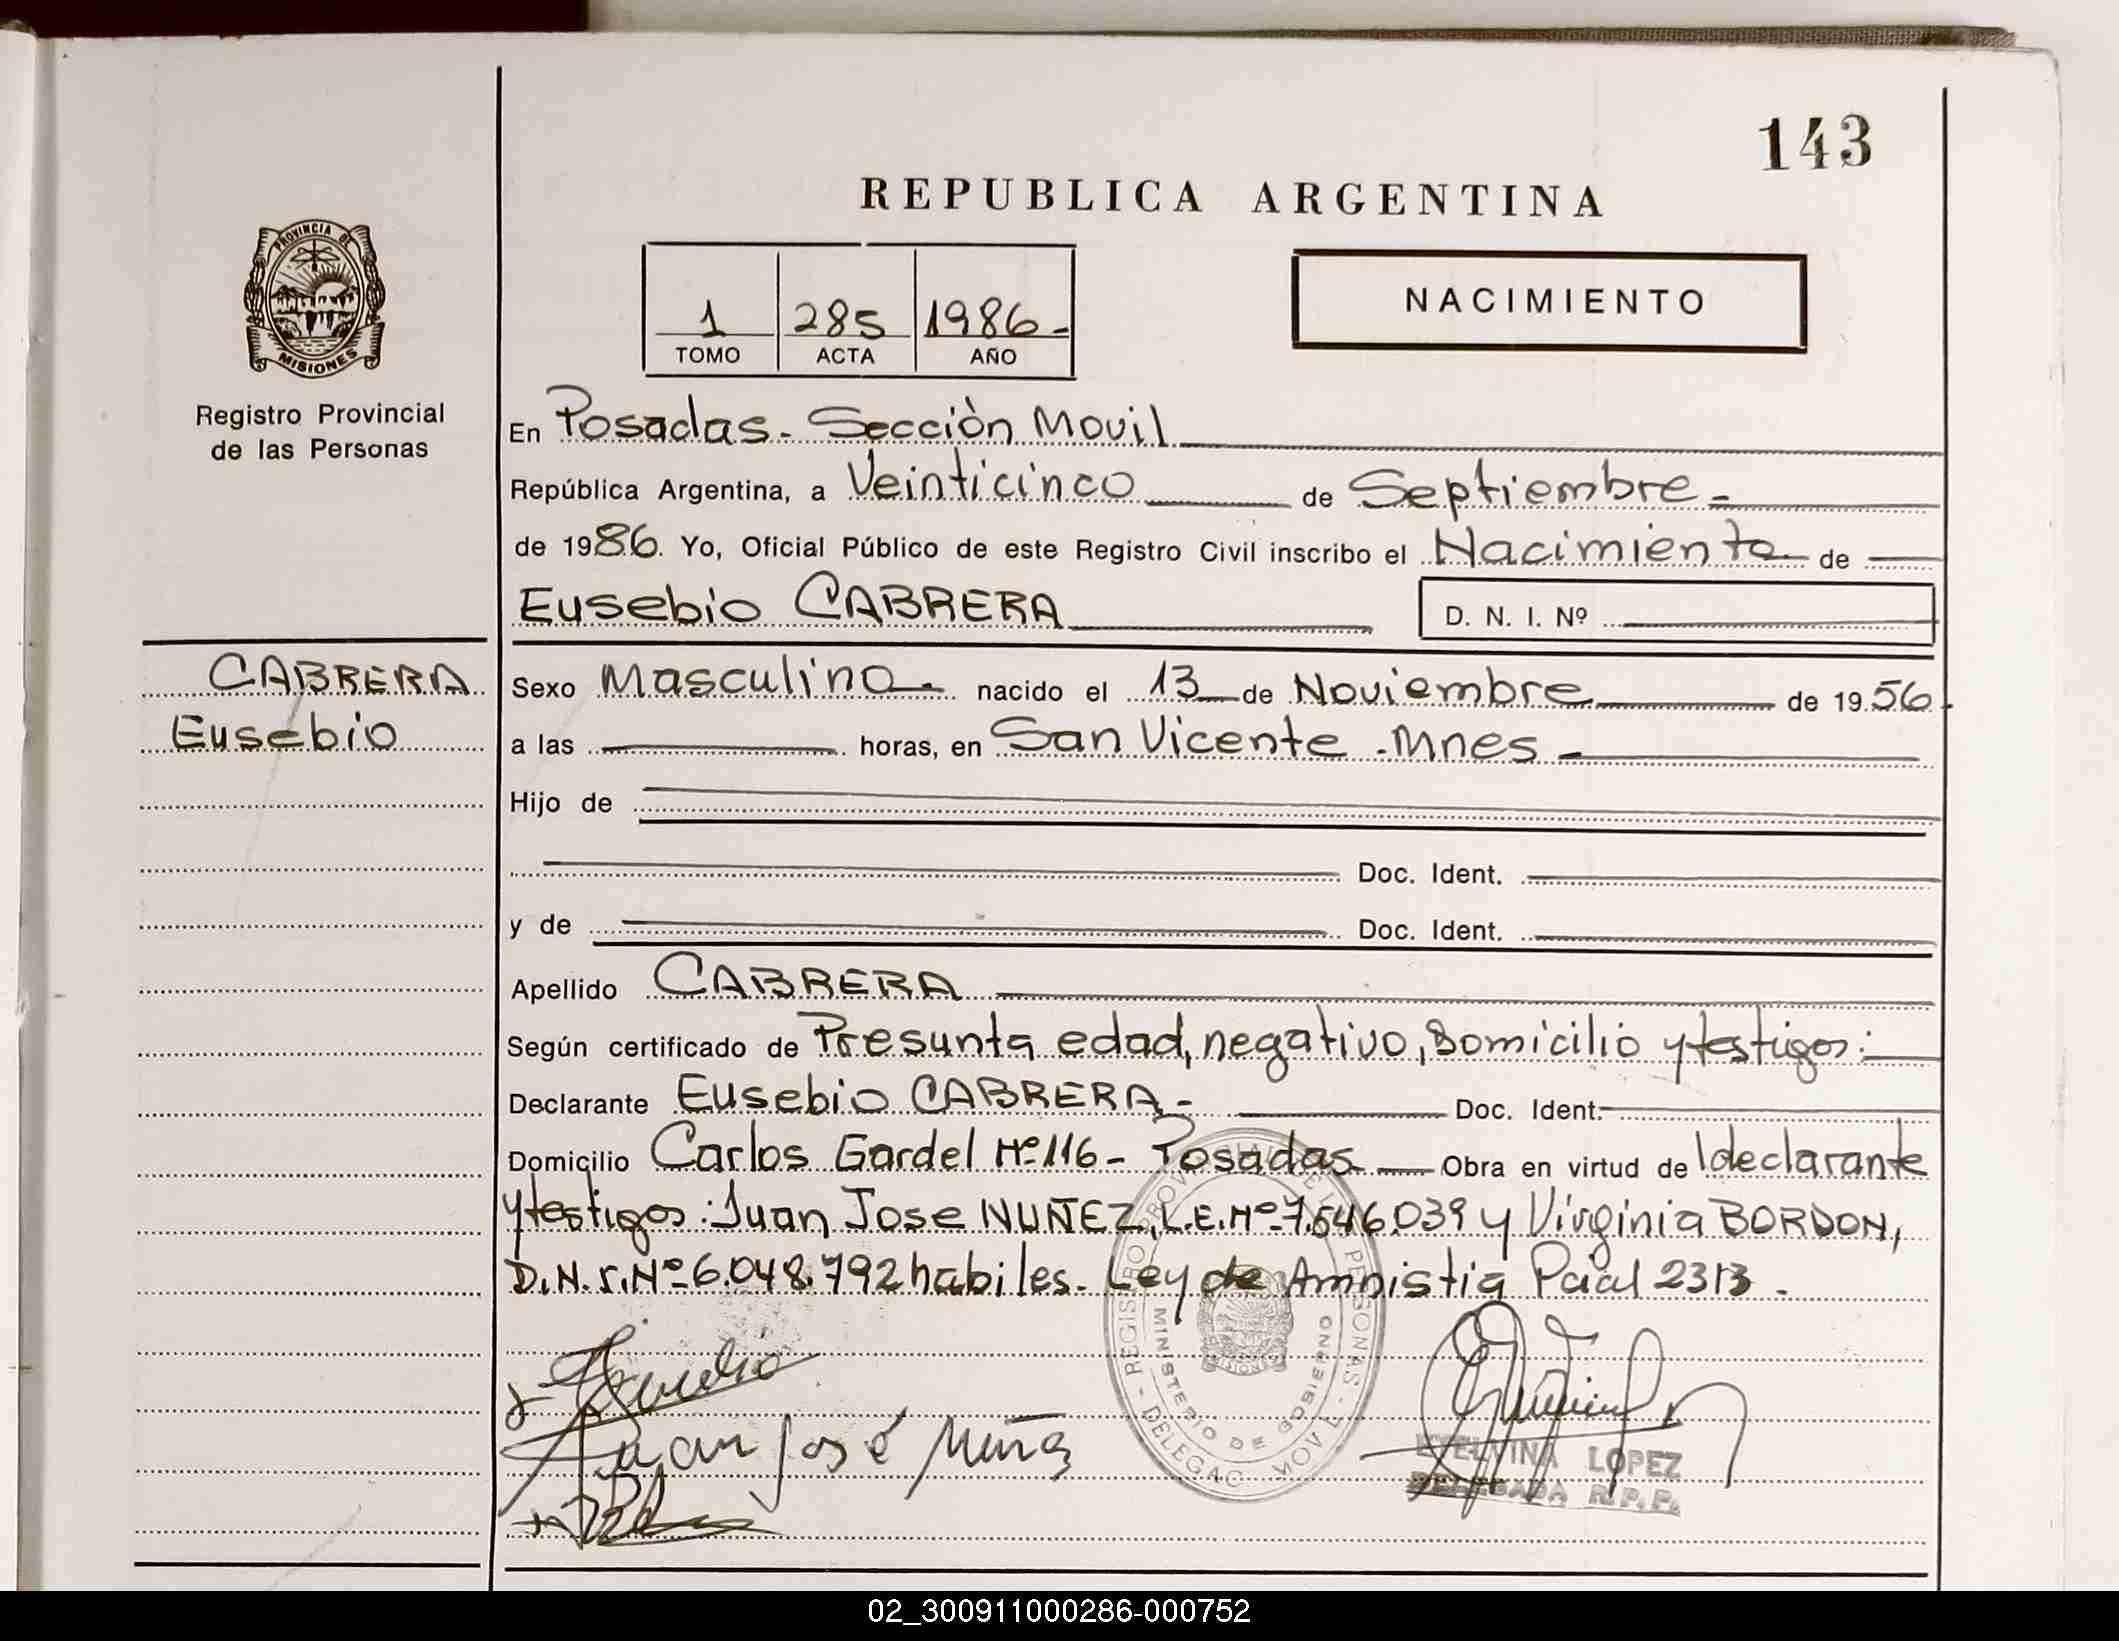 143
REPUBLICA ARGENTINA
PROVINCIA DE
MISIONES
Registro Provincial
de las Personas
1 285 1986-
TOMO ACTA AÑO
NACIMIENTO
En Posadas - Sección Movil
República Argentina, a Veinticinco de Septiembre -
de 1986. Yo, Oficial Público de este Registro Civil inscribo el Nacimiento de
Eusebio CABRERA
D. N. I. Nº
CABRERA
Eusebio
Sexo Masculino - nacido el 13 de Noviembre de 1956.
a las horas, en San Vicente - Mnes -
Hijo de
Doc. Ident.
y de Doc. Ident.
Apellido CABRERA
Según certificado de Presunta edad, negativo, Domicilio y testigos:
Declarante Eusebio CABRERA - Doc. Ident.
Domicilio Carlos Gardel Nº 116 - Posadas Obra en virtud de ldeclarante
y testigos: Juan Jose NUÑEZ, L.E. Nº 7.546.039 y Virginia BORDON,
D.N.I. Nº 6.048.792 habiles. Ley de Amnistia Pcial 2313.
Juan José
REGISTRO PROVINCIAL DE LAS PERSONAS
MINISTERIO DE GOBIERNO
DELEGAC. MOVIL
MISIONES
ETELVINA LOPEZ
DELEGADA R.P.P.
02_300911000286-000752